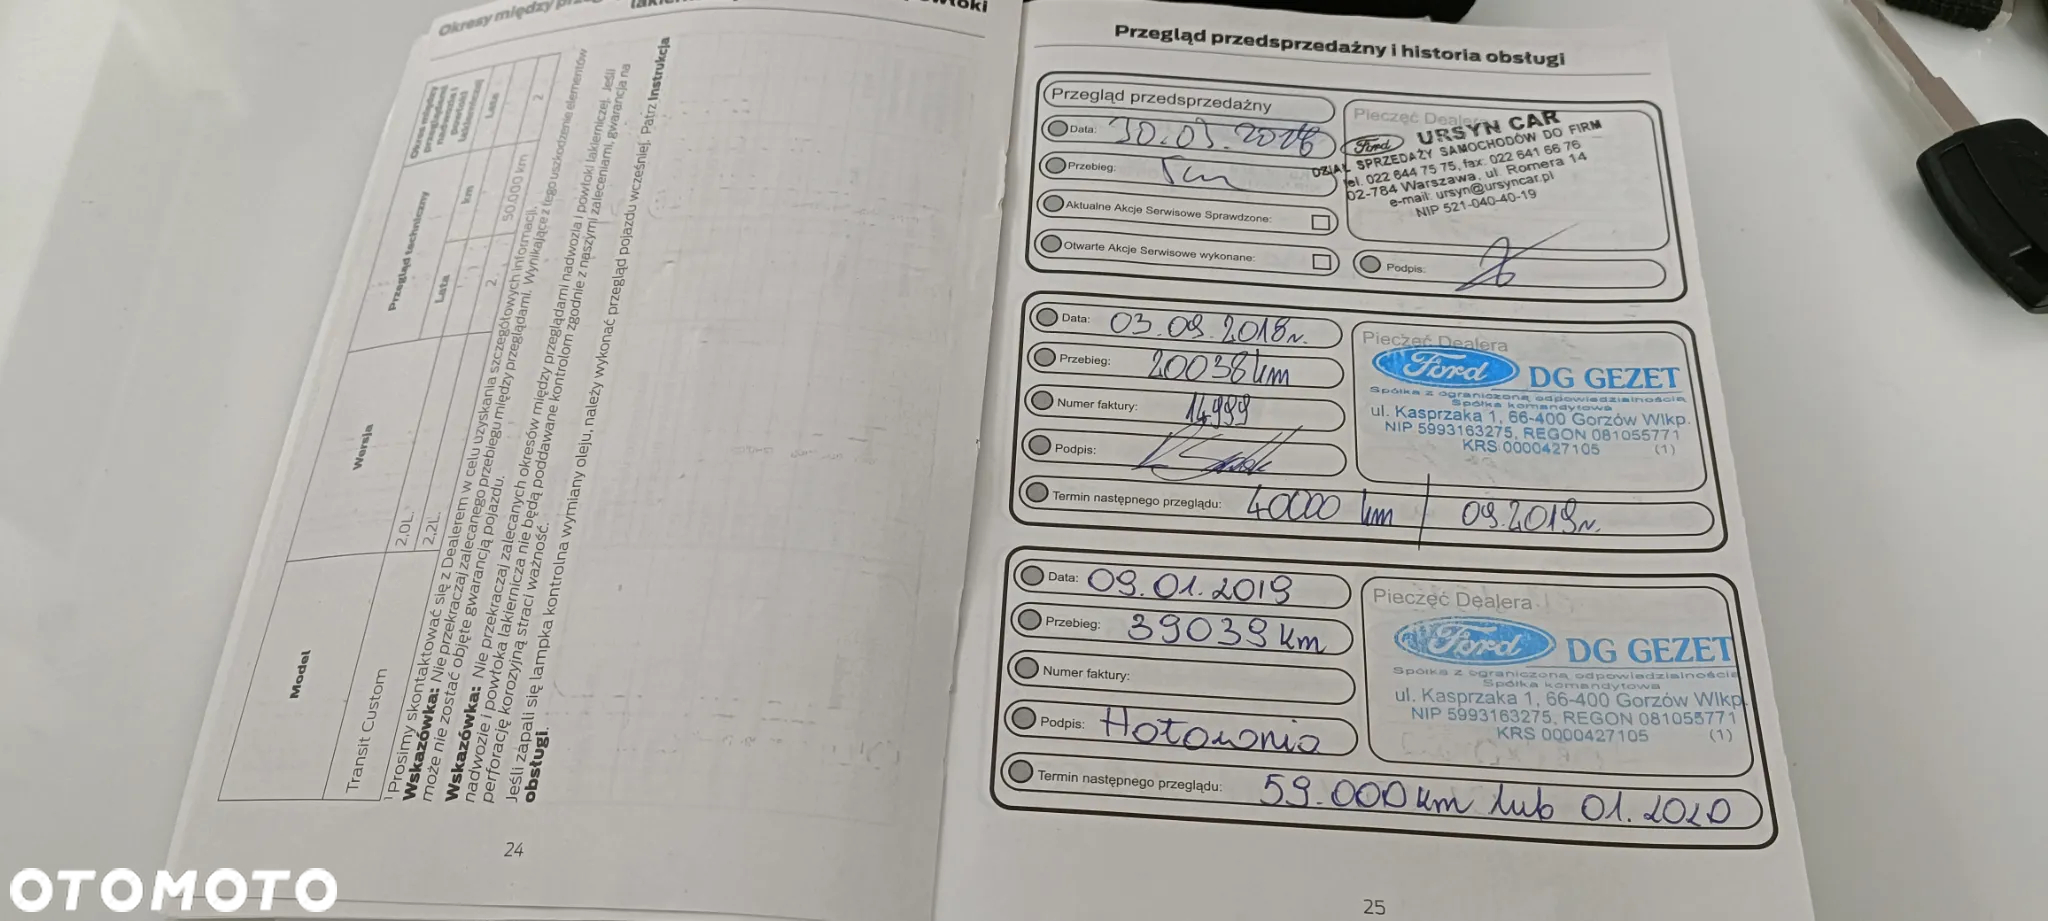 Okresy między
Okres między przeglądami nadwozia i powłoki lakierniczej
Przegląd techniczny
Wersja
Model
Lata
km
Lata
2
50.000 km
2
2,0L.
2,2L.
Transit Custom
Prosimy skontaktować się z Dealerem w celu uzyskania szczegółowych informacji.
Wskazówka: Nie przekraczaj zalecanego przebiegu między przeglądami. Wynikające z tego uszkodzenie elementów
może nie zostać objęte gwarancją pojazdu.
Wskazówka: Nie przekraczaj zalecanych okresów między przeglądami nadwozia i powłoki lakierniczej. Jeśli
nadwozie i powłoka lakiernicza nie będą poddawane kontrolom zgodnie z naszymi zaleceniami, gwarancja na
perforację korozyjną straci ważność.
Jeśli zapali się lampka kontrolna wymiany oleju, należy wykonać przegląd pojazdu wcześniej. Patrz Instrukcja
obsługi.
24
Przegląd przedsprzedażny i historia obsługi
Przegląd przedsprzedażny
Data: 30.03.2018
Przebieg:
Aktualne Akcje Serwisowe Sprawdzone:
Otwarte Akcje Serwisowe wykonane:
Pieczęć Dealera
Ford URSYN CAR
DZIAŁ SPRZEDAŻY SAMOCHODÓW DO FIRM
tel. 022 644 75 75, fax: 022 641 66 76
02-784 Warszawa, ul. Romera 14
e-mail: ursyn@ursyncar.pl
NIP 521-040-40-19
Podpis:
Data: 03.09.2018r.
Przebieg: 20038 km
Numer faktury: 14999
Podpis:
Termin następnego przeglądu: 40000 km / 09.2019r.
Pieczęć Dealera
Ford DG GEZET
Spółka z ograniczoną odpowiedzialnością
Spółka komandytowa
ul. Kasprzaka 1, 66-400 Gorzów Wlkp.
NIP 5993163275, REGON 081055771
KRS 0000427105 (1)
Data: 09.01.2019
Przebieg: 39039 km
Numer faktury:
Podpis: Hołownia
Termin następnego przeglądu: 59.000 km lub 01.2020
Pieczęć Dealera
Ford DG GEZET
Spółka z ograniczoną odpowiedzialnością
Spółka komandytowa
ul. Kasprzaka 1, 66-400 Gorzów Wlkp.
NIP 5993163275, REGON 081055771
KRS 0000427105 (1)
25
OTOMOTO